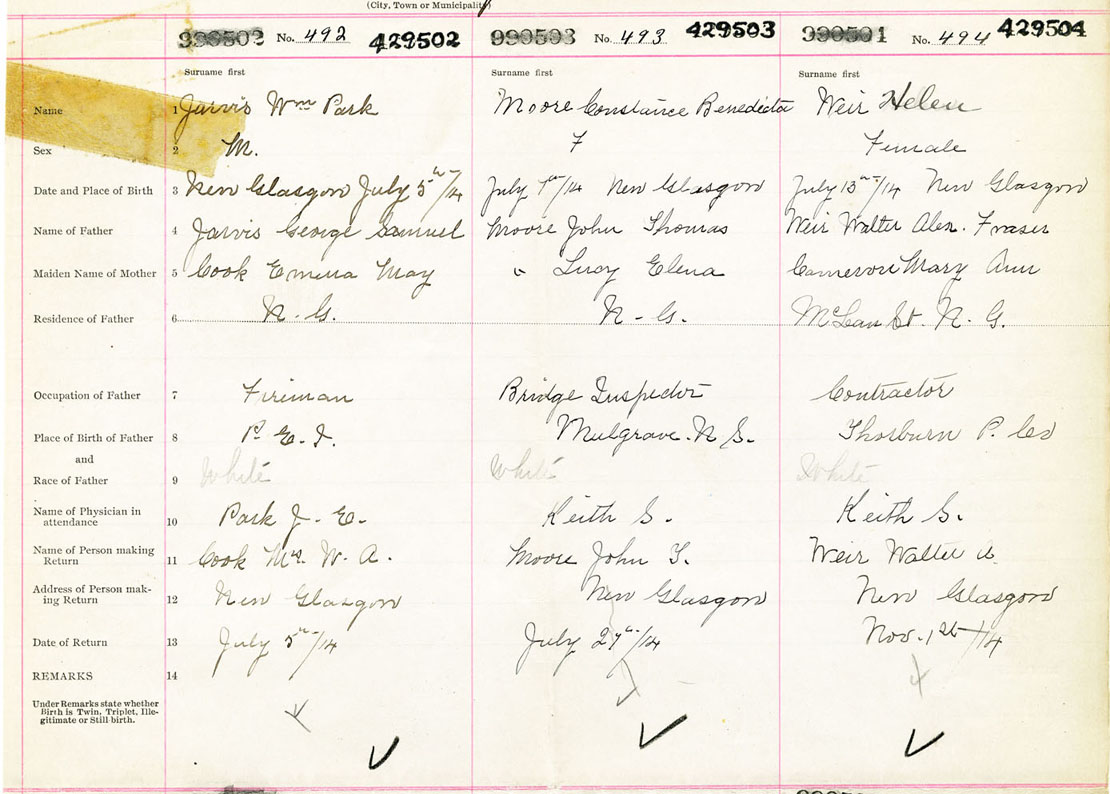 (City, Town or Municipality)
990502 No. 492 429502 990503 No. 493 429503 990501 No. 494 429504
Surname first Surname first Surname first
Name 1 Jarvis Wm Park Moore Constance Benedicta Weir Helen
Sex 2 M. F Female
Date and Place of Birth 3 New Glasgow July 5th/14 July 7th/14 New Glasgow July 13th/14 New Glasgow
Name of Father 4 Jarvis George Samuel Moore John Thomas Weir Walter Alex. Fraser
Maiden Name of Mother 5 Cook Emma May " Lucy Elena Cameron Mary Ann
Residence of Father 6 N. G. N - G. McLean St. N. G.
Occupation of Father 7 Fireman Bridge Inspector Contractor
Place of Birth of Father 8 P. E. I. Mulgrave. N S. Thorburn P. Co
and
Race of Father 9 White White White
Name of Physician in
attendance 10 Park J. E. Keith S. Keith S.
Name of Person making
Return 11 Cook Mrs. W. A. Moore John T. Weir Walter A
Address of Person mak-
ing Return 12 New Glasgow New Glasgow New Glasgow
Date of Return 13 July 5th/14 July 27th/14 Nov. 1st/14
REMARKS 14
Under Remarks state whether
Birth is Twin, Triplet, Ille-
gitimate or Still-birth.